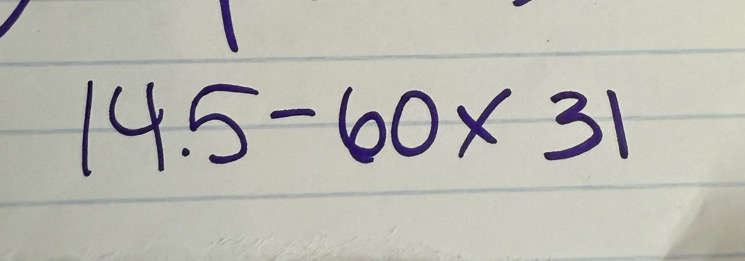 14.5-60x 31